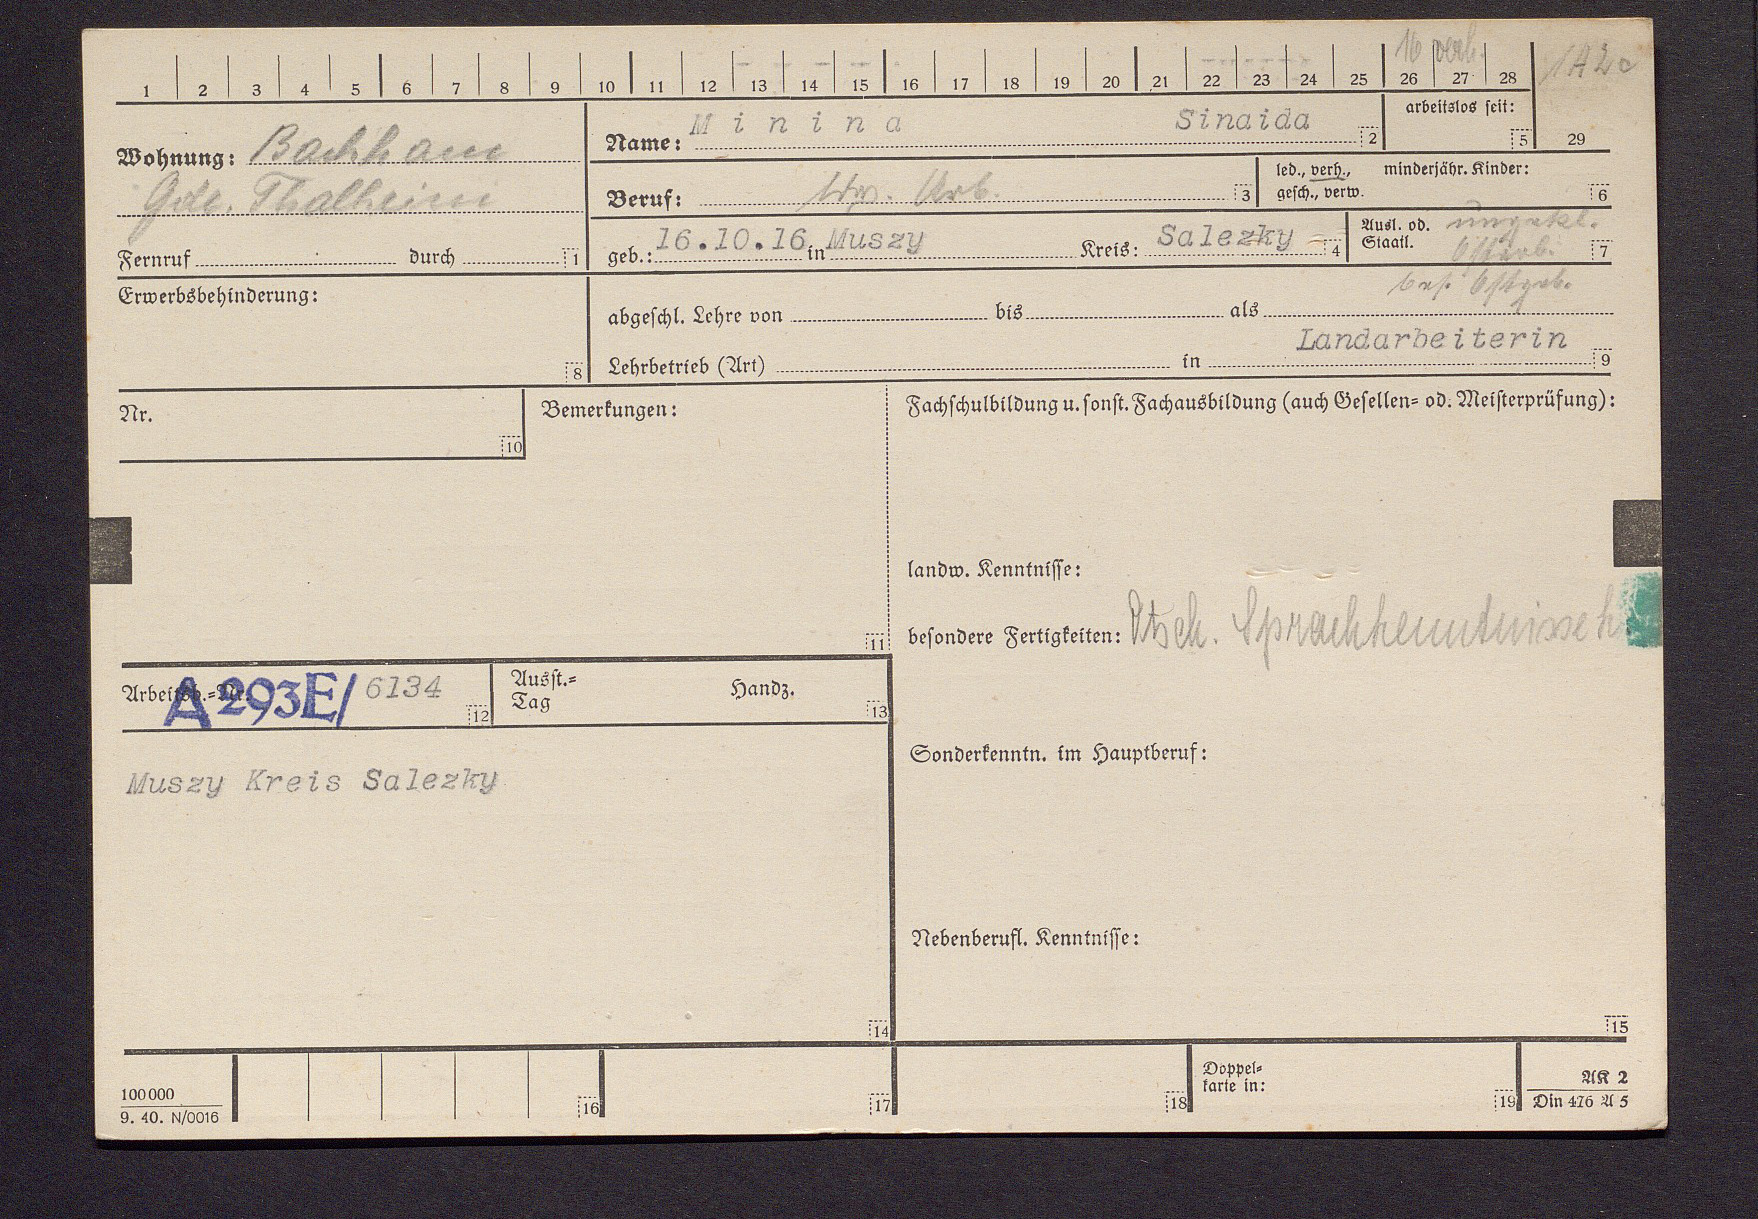 16 verh.
1A2c
1 2 3 4 5 6 7 8 9 10 11 12 13 14 15 16 17 18 19 20 21 22 23 24 25 26 27 28
29
Wohnung: Bachham
Gde. Thalheim
Fernruf durch 1
Name: Minina Sinaida 2
arbeitslos seit: 5
Beruf: ldw. Arb. 3
led., verh., minderjähr. Kinder:
gesch., verw. 6
geb.: 16.10.16 in Muszy Kreis: Salezky 4
Ausl. od. ungekl.
Staatl. Ostarb. 7
bes. Ostgeb.
Erwerbsbehinderung:
8
abgeschl. Lehre von bis als
Landarbeiterin
Lehrbetrieb (Art) in 9
Nr.
10
Bemerkungen:
11
Fachschulbildung u. sonst. Fachausbildung (auch Gesellen= od. Meisterprüfung):
landw. Kenntnisse:
besondere Fertigkeiten: Dtsch. Sprachkenntnisse
Arbeitsb.=Nr. A 293E/ 6134 12
Ausst.= Handz.
Tag 13
Muszy Kreis Salezky
14
Sonderkenntn. im Hauptberuf:
Nebenberufl. Kenntnisse:
15
100000
9. 40. N/0016
16
17
18
Doppel=
karte in: 19
AK 2
Din 476 A 5